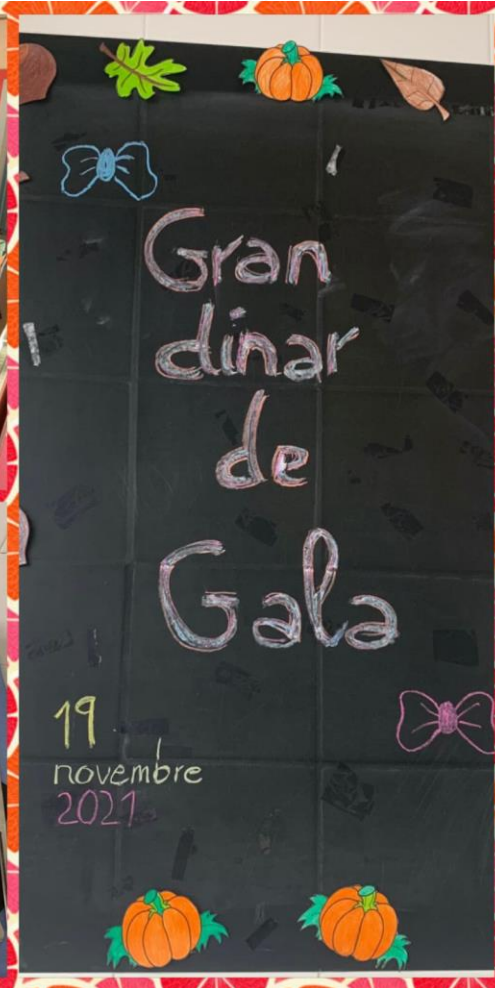 Gran
dinar
de
Gala
19
novembre
2021